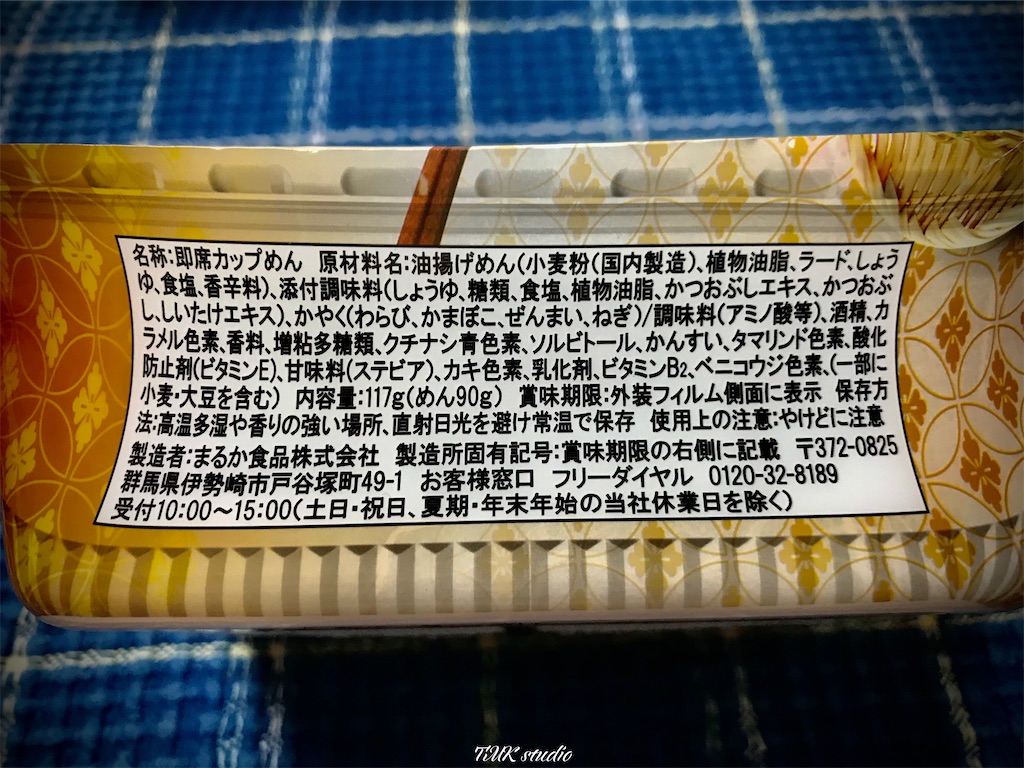 名称:即席カップめん 原材料名:油揚げめん(小麦粉(国内製造)、植物油脂、ラード、しょう
ゆ、食塩、香辛料)、添付調味料(しょうゆ、糖類、食塩、植物油脂、かつおぶしエキス、かつおぶ
し、しいたけエキス)、かやく(わらび、かまぼこ、ぜんまい、ねぎ)/調味料(アミノ酸等)、酒精、カ
ラメル色素、香料、増粘多糖類、クチナシ青色素、ソルビトール、かんすい、タマリンド色素、酸化
防止剤(ビタミンE)、甘味料(ステビア)、カキ色素、乳化剤、ビタミンB2、ベニコウジ色素、(一部に
小麦・大豆を含む) 内容量:117g(めん90g) 賞味期限:外装フィルム側面に表示 保存方
法:高温多湿や香りの強い場所、直射日光を避け常温で保存 使用上の注意:やけどに注意
製造者:まるか食品株式会社 製造所固有記号:賞味期限の右側に記載 〒372-0825
群馬県伊勢崎市戸谷塚町49-1 お客様窓口 フリーダイヤル 0120-32-8189
受付10:00～15:00(土日・祝日、夏期・年末年始の当社休業日を除く)
TiUK studio